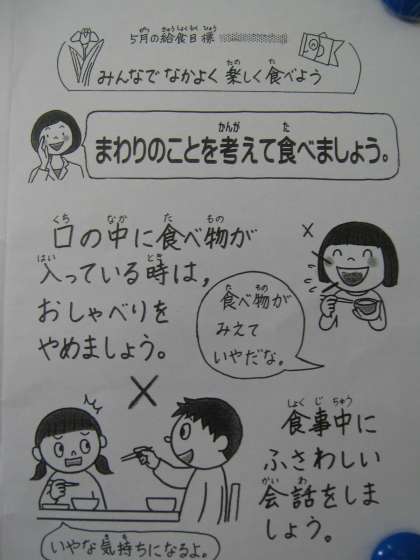 5月の給食目標
みんなで なかよく 楽しく 食べよう
まわりのことを考えて食べましょう。
口の中に食べ物が
入っている時は,
おしゃべりを
やめましょう。
食べ物が
みえて
いやだな。
食事中に
ふさわしい
会話をしま
しょう。
いやな気持ちになるよ。